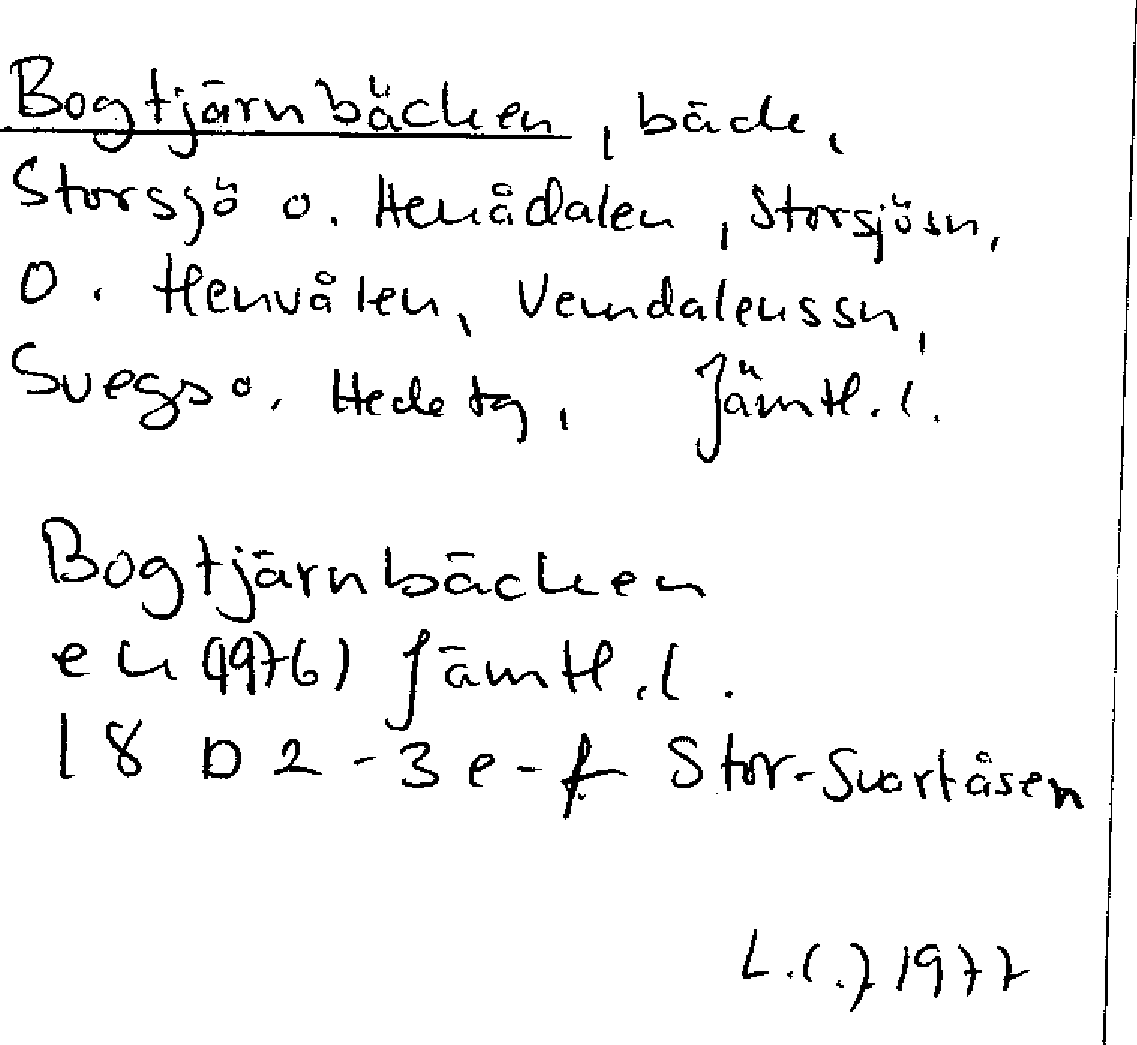 Bogtjärnbäcken, bäck,
Storsjö o. Henådalen, Storsjösn,
O. Henvålen, Vemdalenssn,
Svegs o. Hede tg, Jämtl. l.
Bogtjärnbäcken
ek (1976) Jämtl. l.
18 D 2-3 e-f Stor-Svartåsen
1977